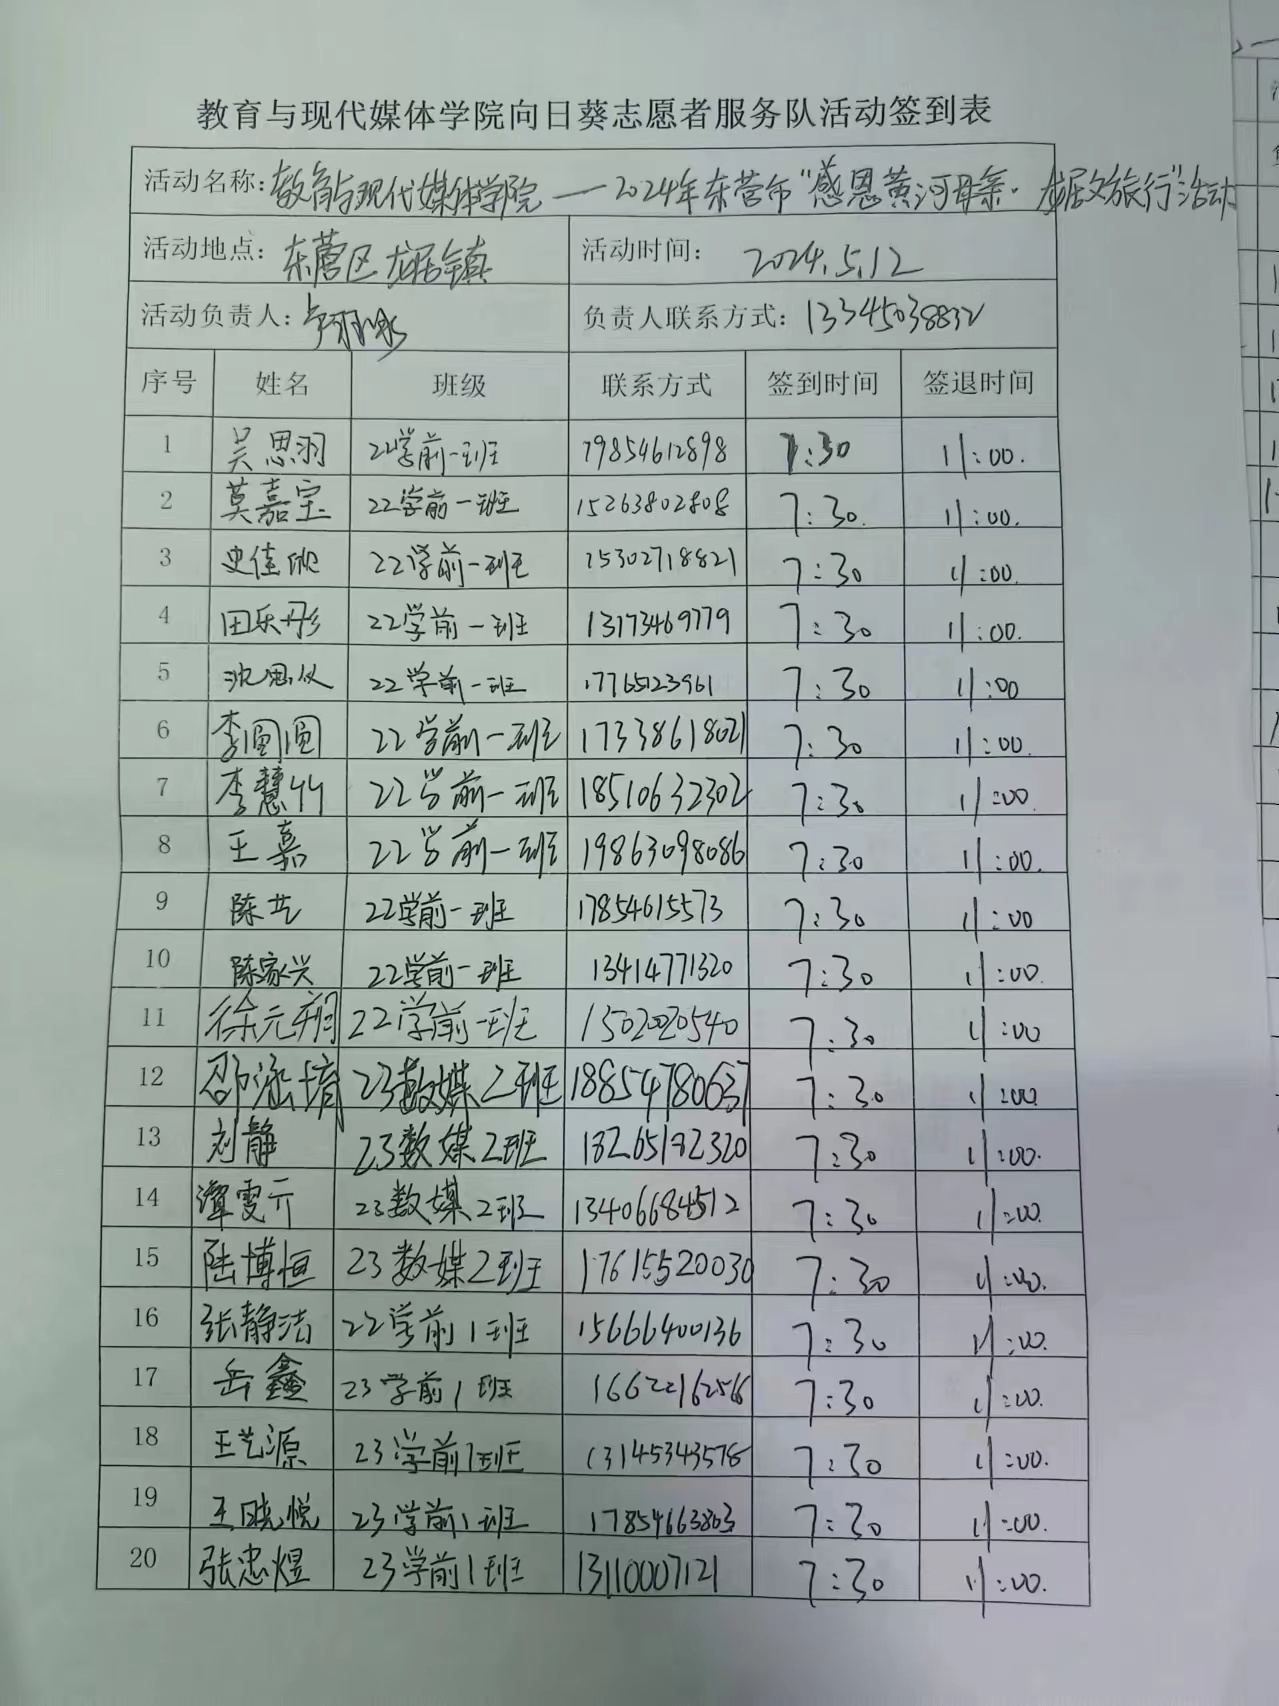 教育与现代媒体学院向日葵志愿者服务队活动签到表
活动名称:教育与现代媒体学院——2024年东营市“感恩黄河母亲·龙居文旅行”活动
活动地点: 东营区龙居镇 活动时间: 2024.5.12
活动负责人: 负责人联系方式: 13345038832
序号 姓名 班级 联系方式 签到时间 签退时间
1 吴思羽 22学前一班 19854612898 7:30 11:00.
2 莫嘉宝 22学前一班 15263802808 7:30. 11:00.
3 史佳欣 22学前一班 15302718821 7:30 11:00.
4 田乐彤 22学前一班 13173469779 7:30 11:00.
5 沈思仪 22学前一班 17765123961 7:30 11:00
6 李圆圆 22学前一班 17338618021 7:30 11:00.
7 李慧竹 22学前一班 18510632302 7:30 11:00.
8 王嘉 22学前一班 19863098086 7:30 11:00.
9 陈艺 22学前一班 17854615573 7:30 11:00
10 陈家兴 22学前一班 13414771320 7:30 11:00.
11 徐元翔 22学前一班 7:30 11:00
12 邵涵堉 23数媒2班 18854780637 7:30 11:00
13 刘静 23数媒2班 18265182320 7:30 11:00.
14 谭雯亓 23数媒2班 13406684512 7:30 11:00.
15 陆博恒 23数媒2班 17615520030 7:30 11:00.
16 张静洁 22学前1班 15666400136 7:30 11:00.
17 岳鑫 23学前1班 16622216256 7:30 11:00.
18 王艺源 23学前1班 13145343578 7:30 11:00.
19 王晓悦 23学前1班 17854663803 7:30 11:00.
20 张忠煜 23学前1班 13110007121 7:30 11:00.